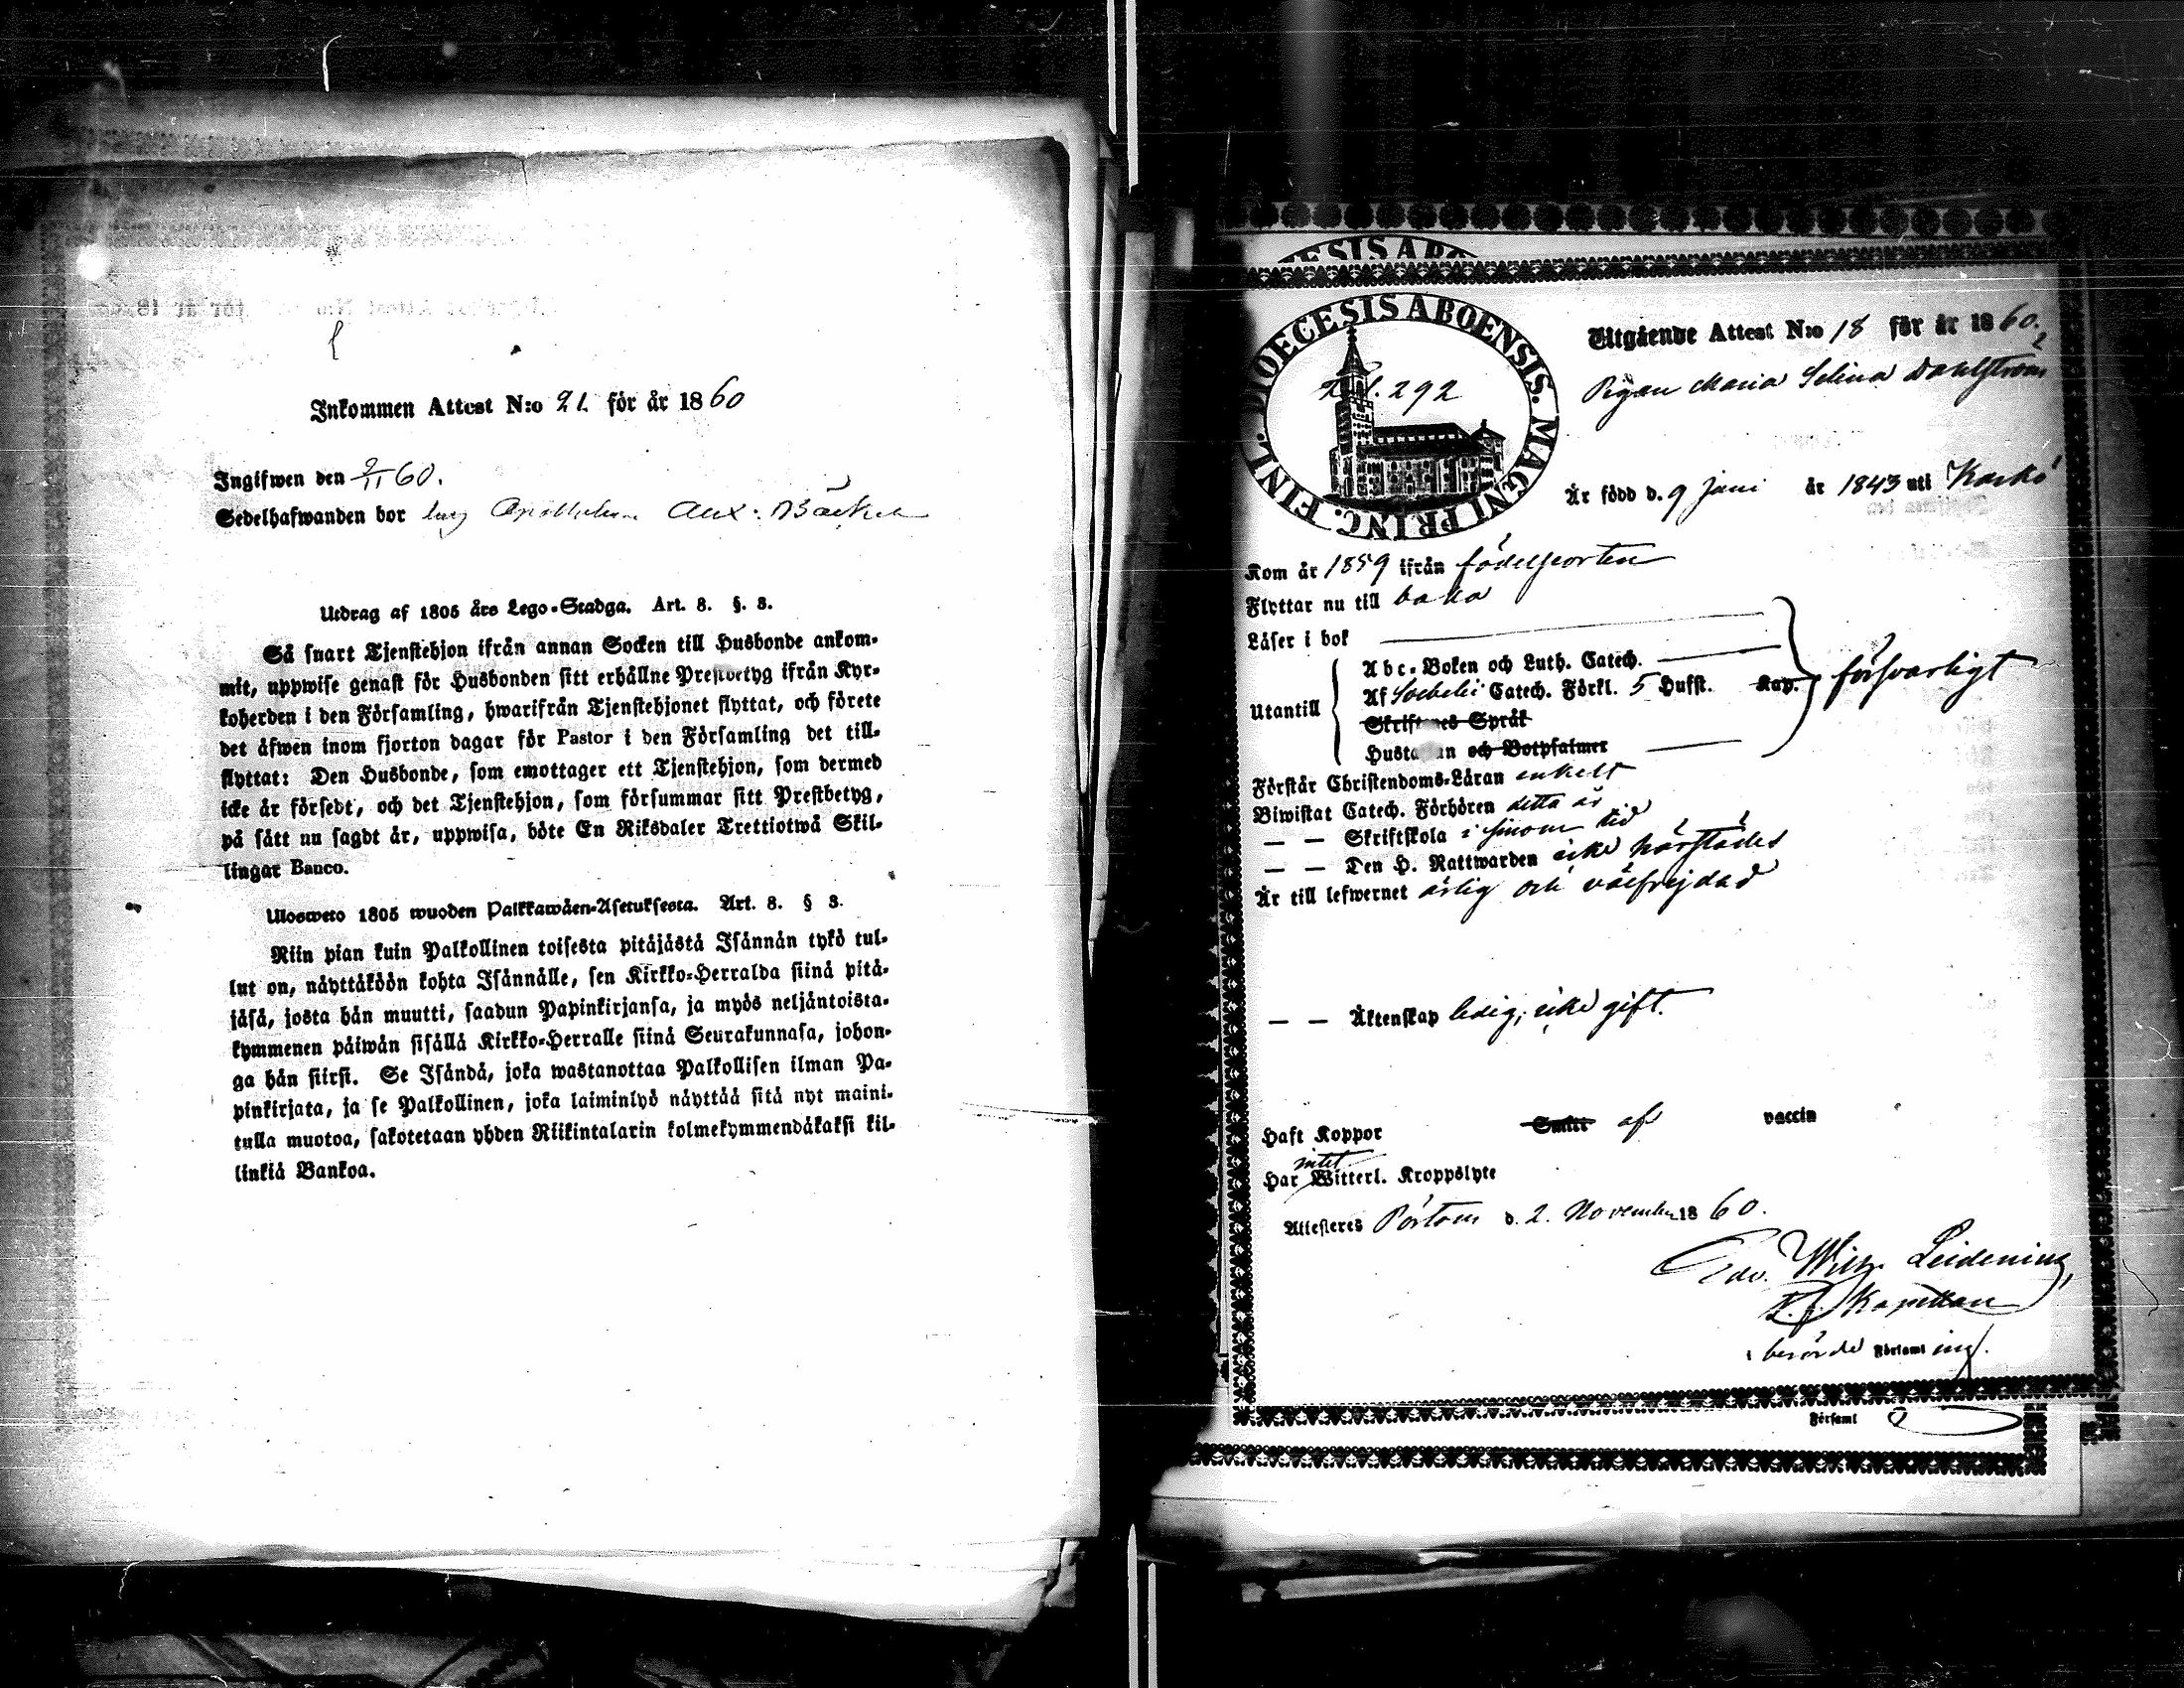 Inkommen Attest N:o 21. för år 1860
Ingifwen den 9/11 60.
Sedelhafwanden bor hos Alex: Bäckn
Utdrag af 1805 års Lego-Stadga. Art. 8. §. 8.
Så snart Tjenstehjon ifrån annan Socken till Husbonde ankom-
mit, uppwise genast för Husbonden sitt erhållne Prestbetyg ifrån Kyr-
koherden i den Församling, hwarifrån Tjenstehjonet flyttat, och förete
det äfwen inom fjorton dagar för Pastor i den Församling det till-
flyttat: Den Husbonde, som emottager ett Tjenstehjon, som dermed
icke är försedt, och det Tjenstehjon, som försummar sitt Prestbetyg,
på sätt nu sagdt är, uppwisa, böte En Riksdaler Trettiotwå Skil-
lingar Banco.
Ulosweto 1805 wuoden Palkkawäen-Asetuksesta. Art. 8. § 8.
Niin pian kuin Palkollinen toisesta pitäjästä Isännän tykö tul-
lut on, näyttäköön kohta Isännälle, sen Kirkko-Herralda siinä pitä-
jäsä, josta hän muutti, saadun Papinkirjansa, ja myös neljäntoista-
kymmenen päiwän sisällä Kirkko-Herralle siinä Seurakunnasa, johon-
ga hän siirsi. Se Isändä, joka wastanottaa Palkollisen ilman Pa-
pinkirjata, ja se Palkollinen, joka laiminlyö näyttää sitä nyt maini-
tulla muotoa, sakotetaan yhden Riikintalarin kolmekymmendäkaksi kil-
linkiä Bankoa.
DIOECESIS ABOENSIS. MAGNI PRINC. FINL.
292
Utgående Attest N:o 18 för år 1860.
Pigan Maria Selina Dahlström
Är född d. 9 Juni år 1843 uti Kaskö
Kom år 1859 ifrån födelseorten
Flyttar nu till baka
Läser i bok
Utantill
Abc-Boken och Luth. Catech.
Af Svebelii Catech. Förkl. 5 Hufst. Kap.
försvarligt
Skriftenes Språk
Hustaflan och Botpsalmer
Förstår Christendoms-Läran enkelt
Biwistat Catech. Förhören detta år
— — Skriftskola i sinom tid
— — Den H. Nattwarden icke härstädes
Är till lefwernet ärlig och välfrejdad
— — Äktenskap ledig, icke gift.
Haft Koppor Smitt af vaccin
intet
Har Witterl. Kroppslyte
Attesteres Pörtom d. 2. November 1860.
Edv. Wilh. Leidenius,
Kapellan
i berörde Församling.
Församl